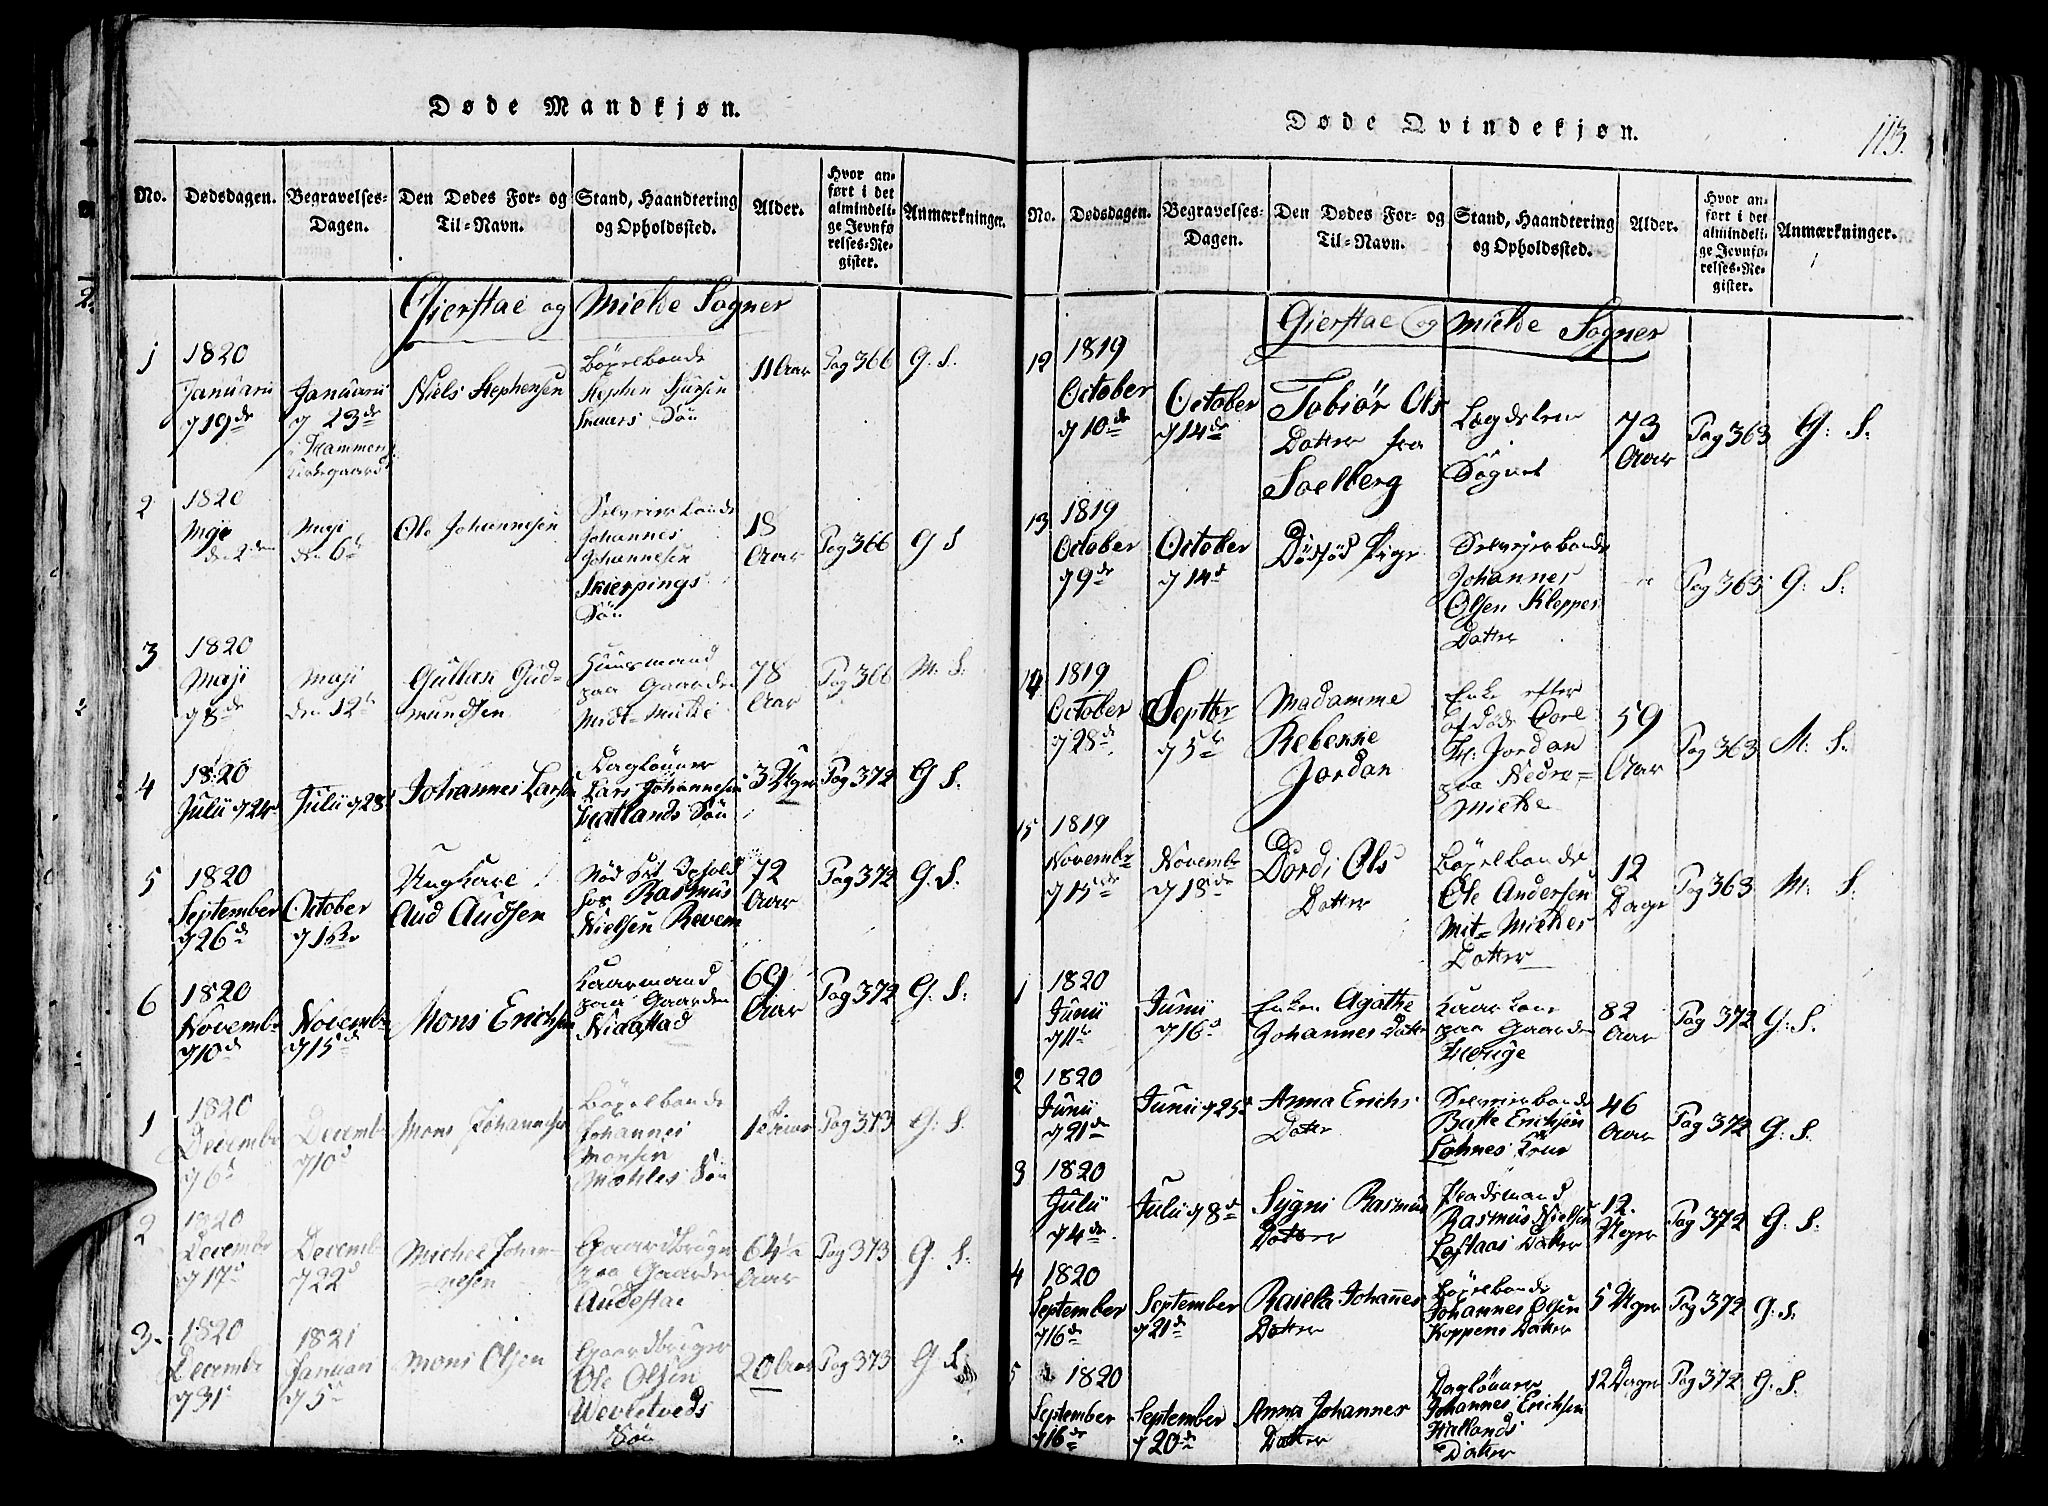 Døde Mandkjøn.
No.
Dødsdagen.
Begravelses-
Dagen.
Den Dødes For- og
Til-Navn.
Stand, Haandtering
og Opholdssted.
Alder.
Hvor an-
ført i det
almindeli-
ge Jevnfø
relses-Re-
gister.
Anmærkninger.
Gierstae og Mielde Sogner
1
1820
Januarii
d 19de
Januarii
d 23de
Hammers
Kirkegaard
Niels Stephensen
Böxelbonde
Stephen
Sön
11 Aar
Pag 366
G. S.
2
1820
Maji
den 2den
Maji
den 6te
Ole Johannesen
Selveierbonde
Johannes
Johannesen
Skierpings
Sön
18
Aar
Pag 366
G S
3
1820
Maji
d 8de
Maji
den 12te
Gullak Gud-
mundsen
Huusmand
paa Gaarden
Midt-Mielde
78
Aar
Pag 366
M. S.
4
1820
Julii d 24de
Julii d 28de
Johannes Larsen
Daglönner
Lars Johannesen
Hatlands Sön
3 Uger
Pag 372
G S.
5
1820
September
d 26de
October
d 1ste
Ungkarl
Aud Audsen
hos Rasmus
Nielsen Revem
72
Aar
Pag 372
G. S.
6
1820
Novembr
d 10de
Novembr
d 15de
Mons Erichsen
Kaarmand
paa Gaarden
Hidastad
69
Aar
Pag 372
G. S.
1
1820
Decembr
d 6te
Decembr
d 10de
Mons Johannesen
Böxelbonde
Johannes
Monsen
Mæhles Sön
Pag 373
G. S.
2
1820
Decembr
d 17de
Decembr
d 22de
Michel Johan-
nesen
Gaardbruger
paa Gaarden
Audestae
64½
Aar
Pag 373
G. S.
3.
1820
Decembr
d 31te
1821
Januari
d 5te
Mons Olsen
Gaardbruger
Ole Olsen
Wevletveds
Sön
20 Aar
Pag 373
G. S.
Døde Qvindekjøn.
113.
No.
Dødsdagen.
Begravelses-
Dagen.
Den Dødes For- og
Til-Navn.
Stand, Haandtering
og Opholdssted.
Alder.
Hvor an-
ført i det
almindeli-
ge Jevnfø-
relses-Re-
gister.
Anmærkninger.
Gierstae og Mielde Sogner
12
1819
October
d 10de
October
d 14de
Tobiör Ols
Datter fra
Soelberg
Lægdslem
Sognet
73
Aar
Pag 363
G: S:
13
1819
October
d 9de
October
d 14de
Dödfød Pige
Selveierbonde
Johannes
Olsen Kleppes
Datter
Pag 363
G: S:
14
1819
October
d 28de
Septbr
d 5te
Madamme
Rebekke
Jordan
Enke efter
afdöde Corl
Fr. Jordan
paa Nedre=
Mielde
59
Aar
Pag 363
M: S:
15
1819
Novembr
d 15de
Novembr
d 18de
Dordi Ols
Datter
Böxelbonde
Ole Andersen
Mit=Mieldes
Datter
12
Dage
Pag 363
M: S.
1
1820
Junii
d 11te
Junii
d 16de
Enken Agathe
Johannes Datter
Kaarkone
paa Gaarden
Herige
82
Aar
Pag 372
G: S:
2
1820
Junii
d 21de
Junii d 25de
Anna Erichs
Datter
Selveierbonde
Baste Erichsen
Lohnes Kone
46
Aar
Pag 372
G: S:
3
1820
Julii
d 4de
Julii d 8de
Sygni Rasmus
Datter
Pladsmand
Rasmus Nielsen
Loftaas Datter
12.
Uger
Pag 372
G: S:
4
1820
September
d 16de
September
d 21de
Raiela Johannes
Datter
Böxelbonde
Johannes Olsen
Koppens Datter
5 Uger
Pag 372
G: S.
5
1820
September
d 16de
September
d 20de
Anna Johannes
Datter
Daglönner
Johannes Erichsen
Hallands
Datter
12 Dage
Pag 372
G: S.